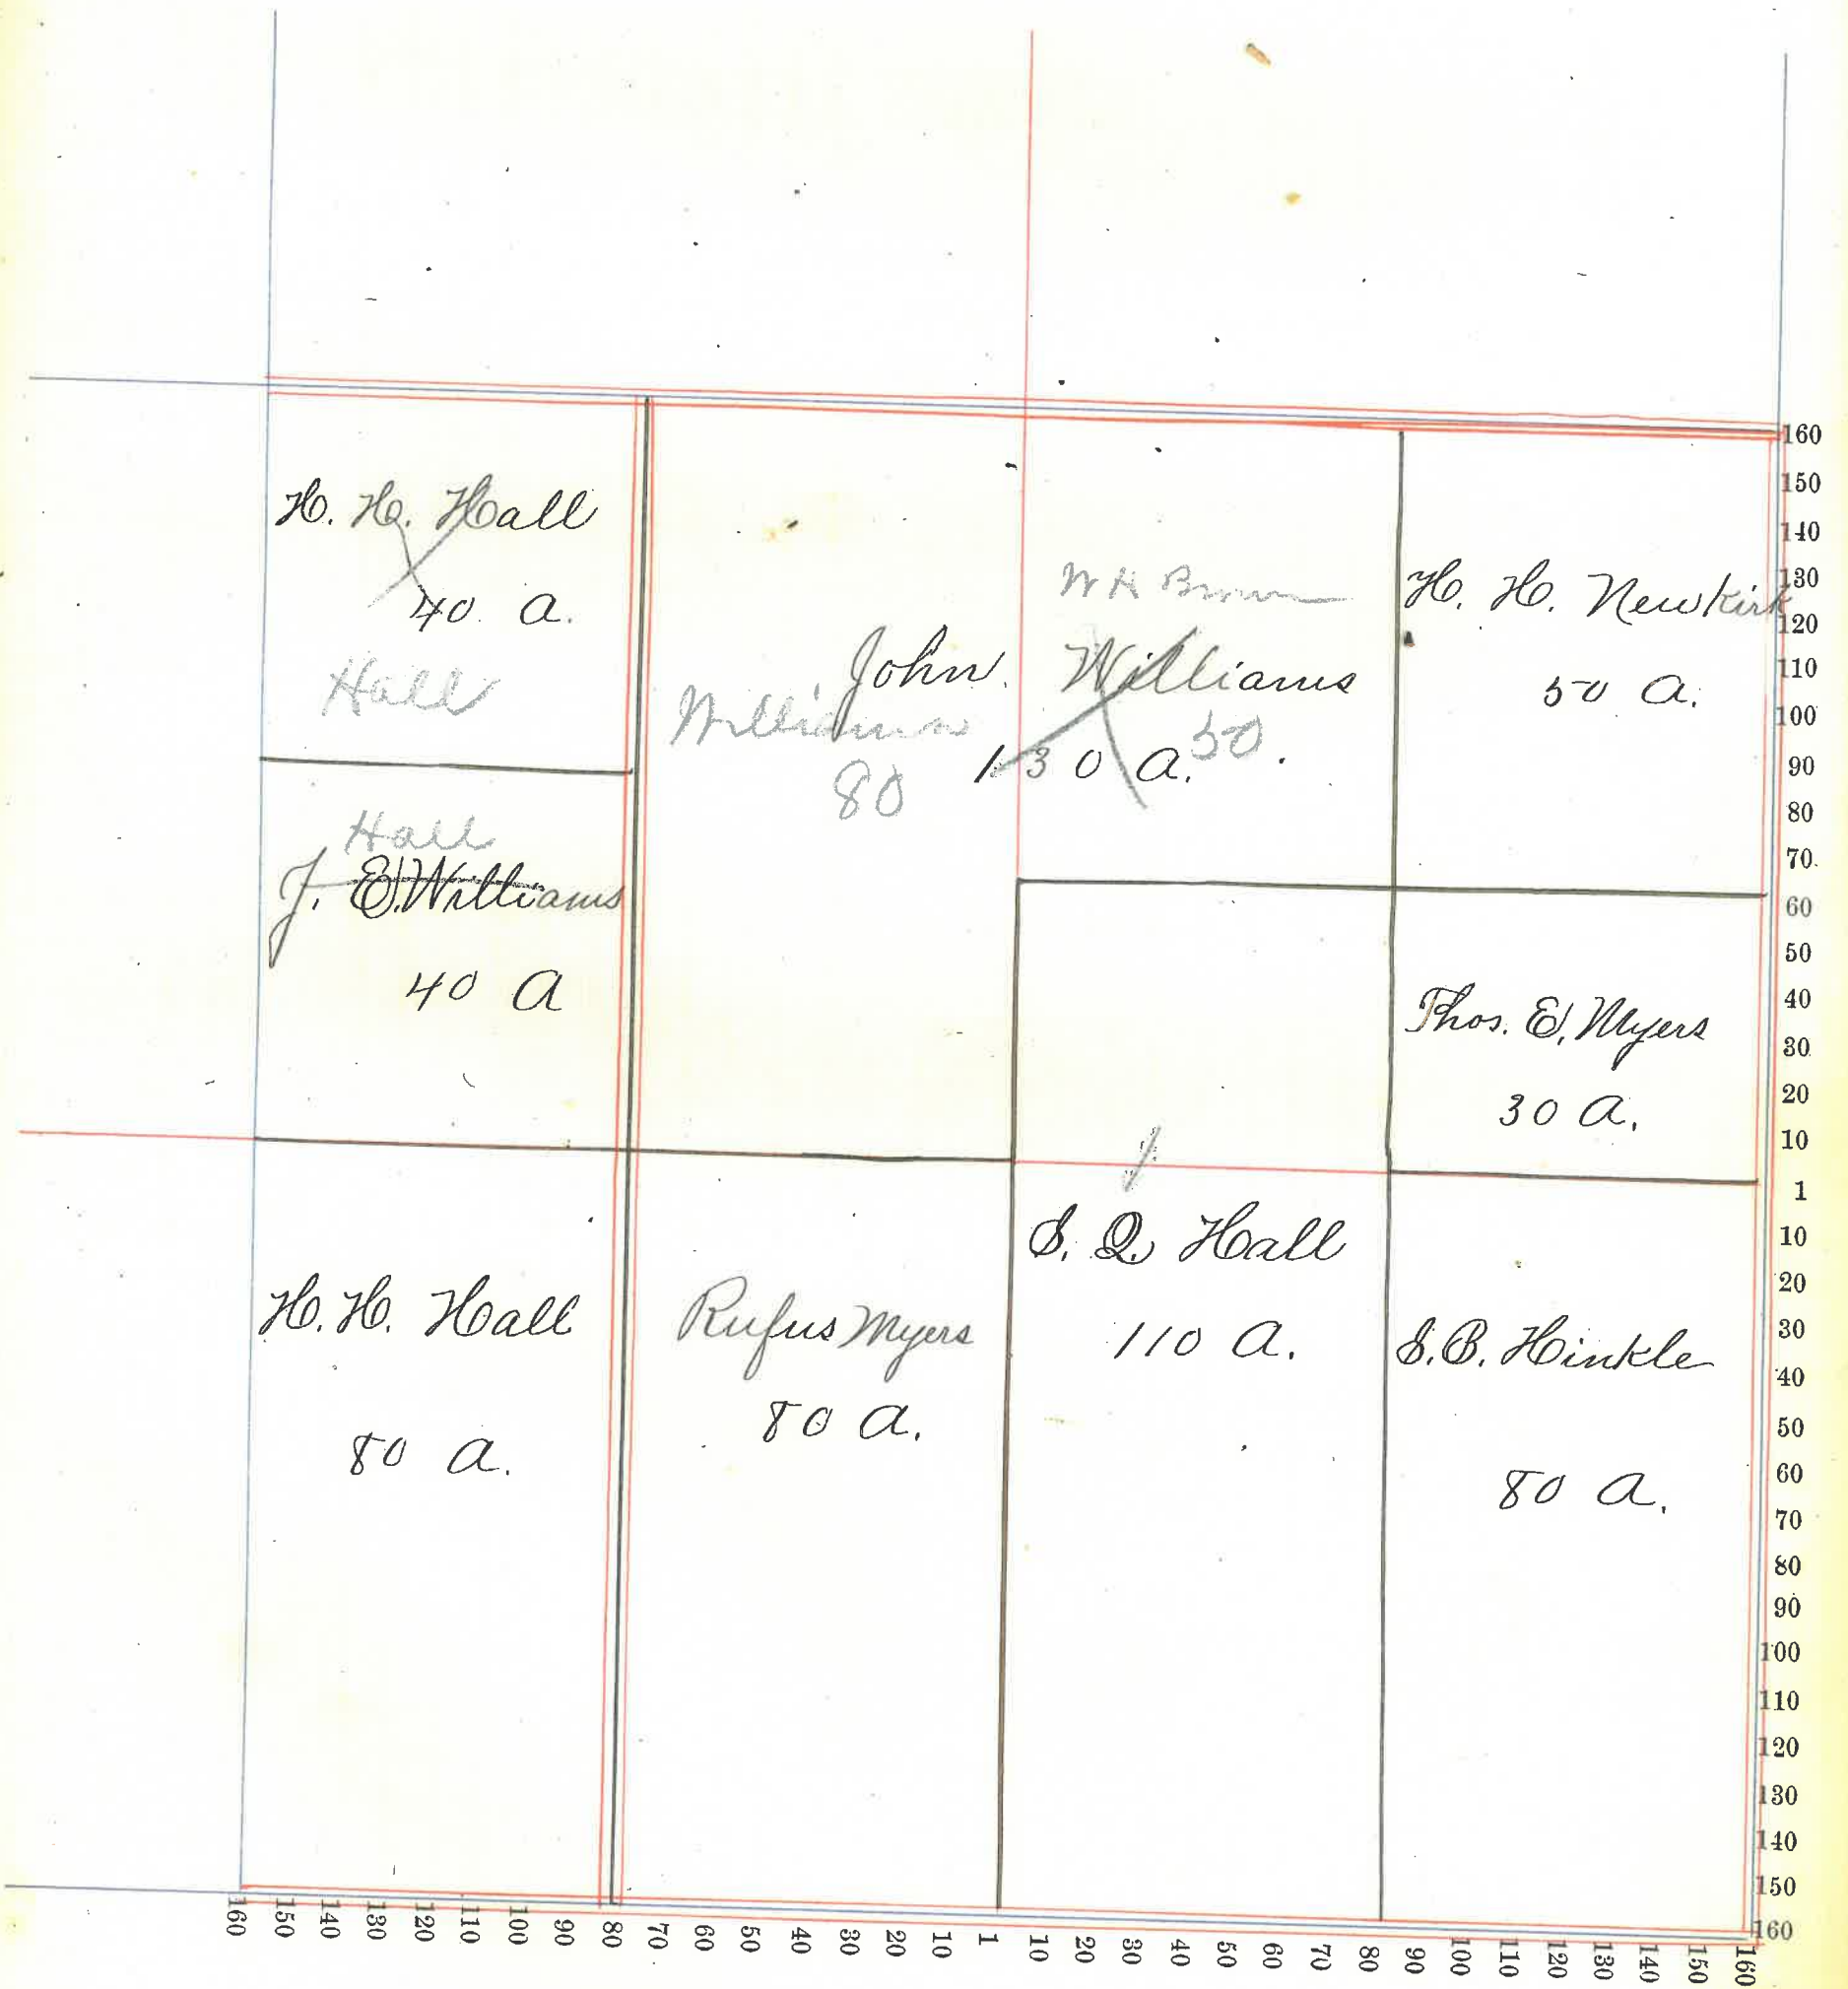 H. H. Hall
40 A.
Hall
Hall
J. E. Williams
40 A
W H Brown
John Williams
Williams
130 A.
50
80
H. H. Newkirk
50 A.
Thos. E. Myers
30 A.
H. H. Hall
80 A.
Rufus Myers
80 A.
S. Q. Hall
110 A.
S. B. Hinkle
80 A.
160
150
140
130
120
110
100
90
80
70
60
50
40
30
20
10
1
10
20
30
40
50
60
70
80
90
100
110
120
130
140
150
160
160 150 140 130 120 110 100 90 80 70 60 50 40 30 20 10 1 10 20 30 40 50 60 70 80 90 100 110 120 130 140 150 160